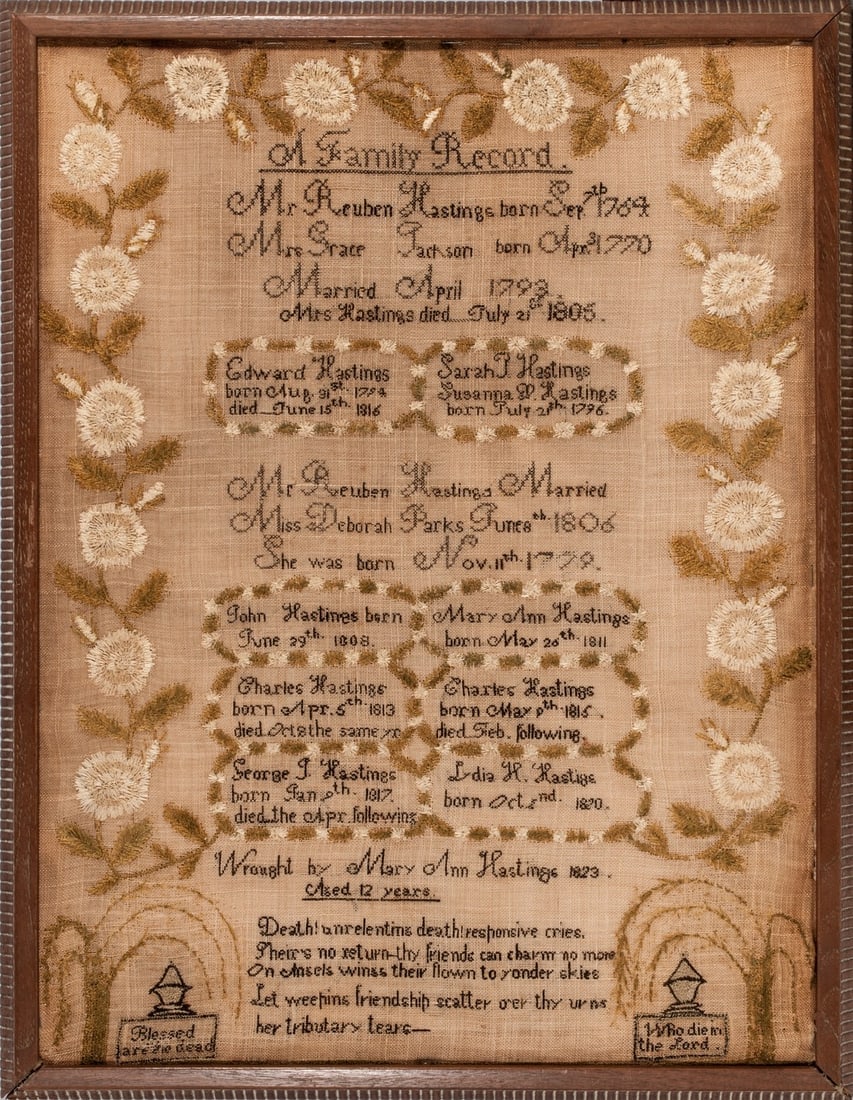 A Family Record.
Mr Reuben Hastings born Sep. 7th 1764
Mrs Grace Jackson born Apr. 1770
Married April 1793.
Mrs Hastings died July 21st 1805.
Edward Hastings
born Aug. 31st. 1794
died June 15th. 1816
Sarah J. Hastings
Susanna W. Hastings
born July 21th. 1796.
Mr Reuben Hastings Married
Miss Deborah Parks June 8th. 1806
She was born Nov. 11th. 1779.
John Hastings born
June 29th. 1808.
Mary Ann Hastings
born May 26th. 1811
Charles Hastings
born Apr. 5th 1813
died Oct 2 the same yr
Charles Hastings
born May 9th. 1815.
died Feb. following.
George J. Hastings
born Jan 9th. 1817.
died the Apr. following
Lydia H. Hastigs
born Oct. 2nd. 1820.
Wrought by Mary Ann Hastings 1823.
Aged 12 years.
Death! unrelenting death! responsive cries.
There's no return thy friends can charm no more
On Angels wings their flown to yonder skies
Let weeping friendship scatter o'er thy urns
her tributary tears—
Blessed
are the dead
Who die in
the Lord.